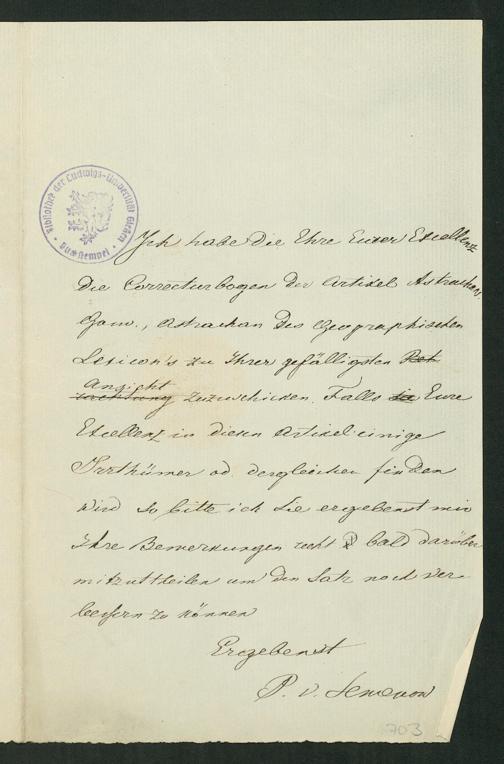 Bibliothek der Ludwigs-Universität Giessen
Ich habe die Ehre Eurer Excellenz
die Correcturbogen der Artikel Astrachan.
Gouv., Astrachan des Geographischen
Lexicon's zu Ihrer gefälligsten
Ansicht
zuzuschicken. Falls Eure
Excellenz in diesen Artikel einige
Irrthümer od. dergleichen finden
wird so bitte ich Sie ergebenst mir
Ihre Bemerkungen recht bald darüber
mitzuttheilen um den Satz noch ver-
bessern zu können
Ergebenst
P. v. Semenow
703